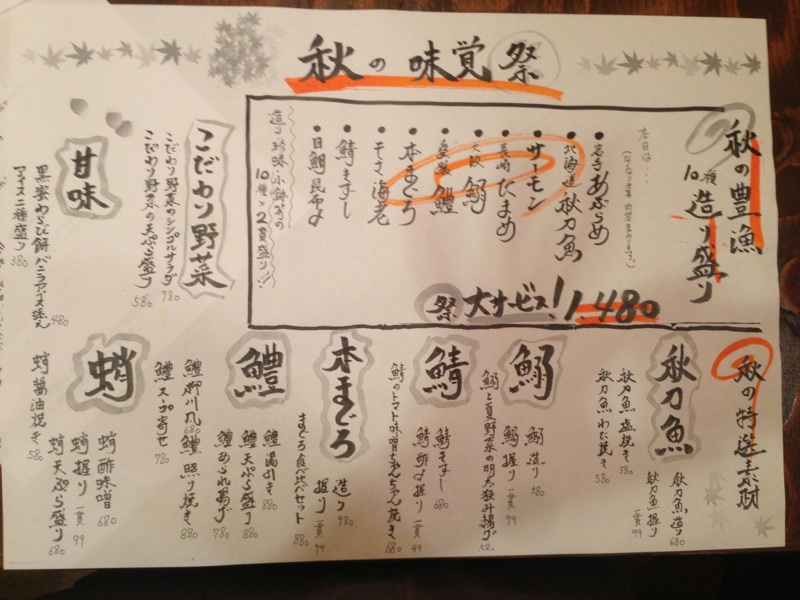 秋の味覚祭
秋の豊漁
10種 造り盛り
本日は…
岩手 あぶらめ
北海道 秋刀魚
サーモン
長崎 ひらめ
大阪 鰯
愛媛 鱧
本まぐろ
干さ海老
鯖きずし
目鯛昆布〆
造り・珍味・小鉢等の
10種×2貫盛り!!
祭 大サービス! 1,480
こだわり野菜
こだわり野菜のシンプルサラダ 780
こだわり野菜の天ぷら盛り 580
甘味
黒蜜わらび餅バニラアイス添え 480
アイス二種盛り 380
秋の特選素材
秋刀魚
秋刀魚造り 680
秋刀魚握り 一貫 99
秋刀魚塩焼き 580
秋刀魚わた焼き 580
鰯
鰯造り 580
鰯握り 一貫 99
鰯と夏野菜の明太挟み揚げ 580
鯖
鯖きずし 680
鯖酢〆握り 一貫 99
鯖のトマト味噌ちゃんちゃん焼き 680
本まぐろ
造り 980
握り 一貫 99
まぐろ食べ比べセット 880
鱧
鱧湯引き 880
鱧天ぷら盛り 880
鱧あられ揚げ 780
鱧柳川風 680
鱧照り焼き 880
鱧スープ寄せ 780
蛸
蛸酢味噌 680
蛸握り 一貫 99
蛸天ぷら盛り 680
蛸醤油焼き 580